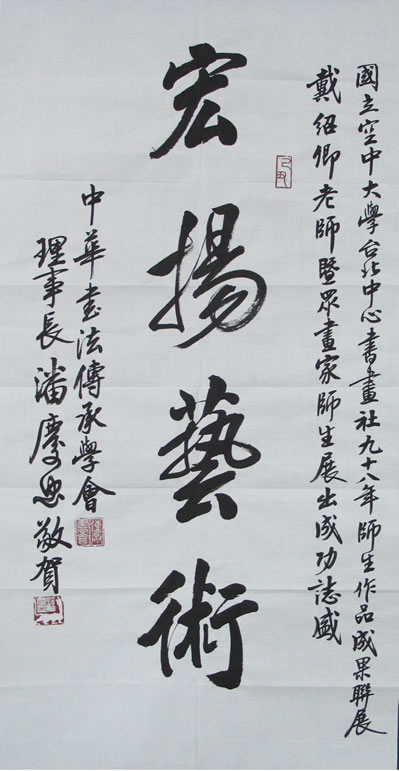 國立空中大學台北中心書畫社九十八年師生作品成果聯展
戴紹卿老師暨眾畫家師生展出成功誌盛
己丑
宏揚藝術
中華書法傳承學會
理事長潘慶忠敬賀